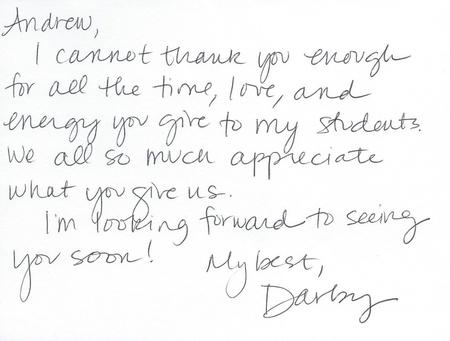 Andrew,
I cannot thank you enough
for all the time, love, and
energy you give to my students.
We all so much appreciate
what you give us.
I'm looking forward to seeing
you soon!
My best,
Darby